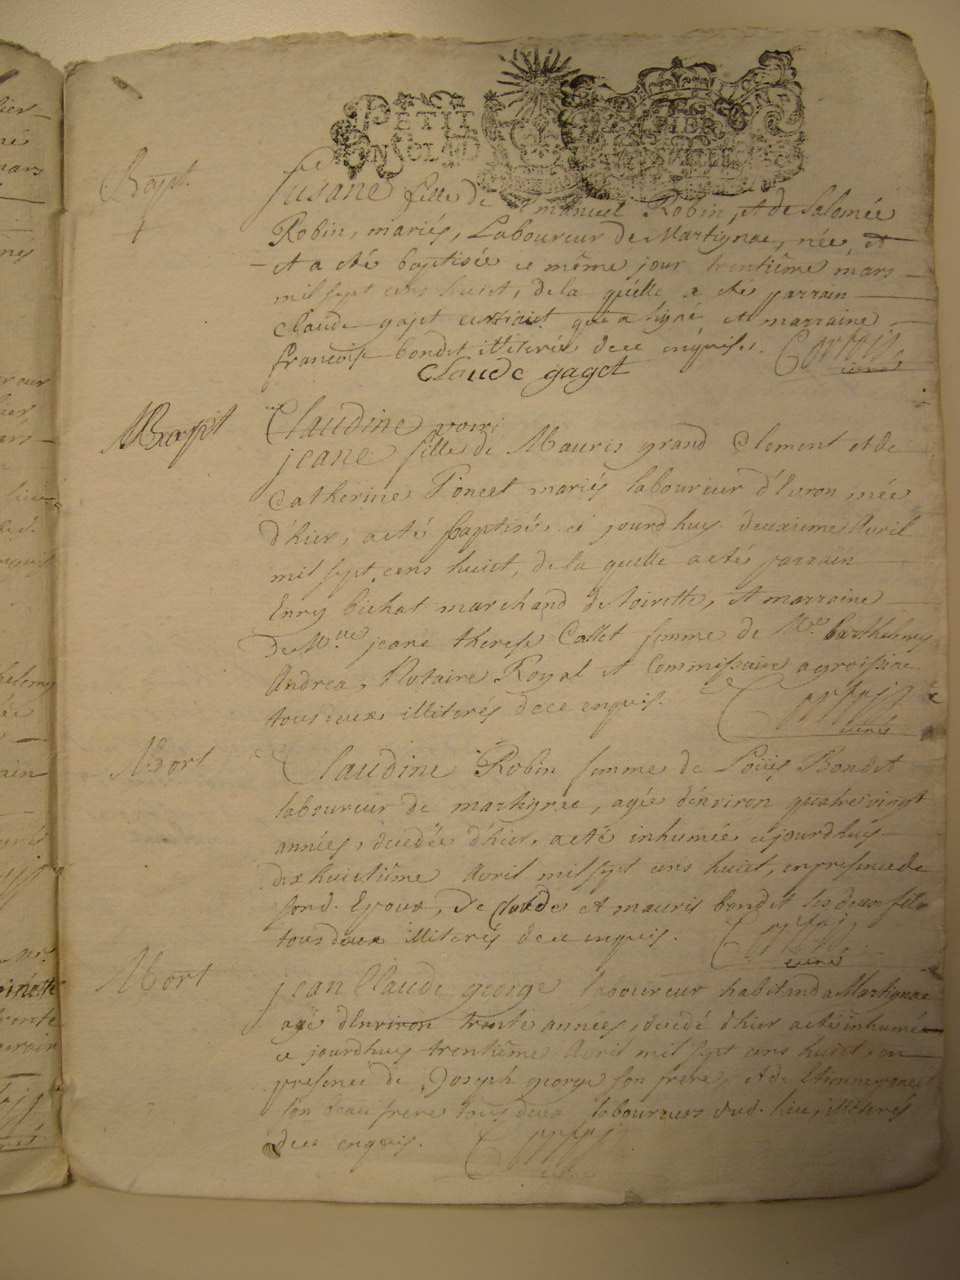 PETIT
EN SCLAD
Bapt.
Susane fille de Emanuel Robin, et de Salomée
Robin, mariés, Laboureur de Martignac, née, et
et a été baptisée ce même jour trentiême mars
mil sept cens huict, de la quelle a été parrain
Claude gaget qui a signé et marraine
francoise bondet illiterée de ce enquise.
curé
Claude gaget
Bapt
Claudine
jeane fille de Mauris grand Clement et de
Catherine Poncet mariés laboureur d'Evron née
d'hier, a eté baptisée ce jourdhuy deuxieme Avril
mil sept cens huict, de la quelle a etés parrain
Enry bichat marchand de loirette, et marraine
de Mlle jeane therese Callet femme de Mre barthelemy
Andrea, Notaire Royal et Commissaire a groissiac
tous deux illiterés de ce enquis.
curé
Mort
Claudine Robin femme de Loüis Bondet
laboureur de martignac, agée d'environ quatre vingt
années, decedée d'hier, a eté inhumée ce jourdhuy
dix huictiême Avril mil sept cens huict, en presence de
sond. Epoux, de Claude et mauris bondet ses deux fils
tous deux illiterés de ce enquis.
curé
Mort
jean Claude george laboureur habitand a Martignac
agé d'Environ trente années, decedé d'hier a eté inhumé
ce jourdhuy trentiême Avril mil sept cens huict, en
presence de Joseph george son frere, et de Etienne
son beau frere tous deux laboureurs dud. lieu, illiterés
de ce enquis.